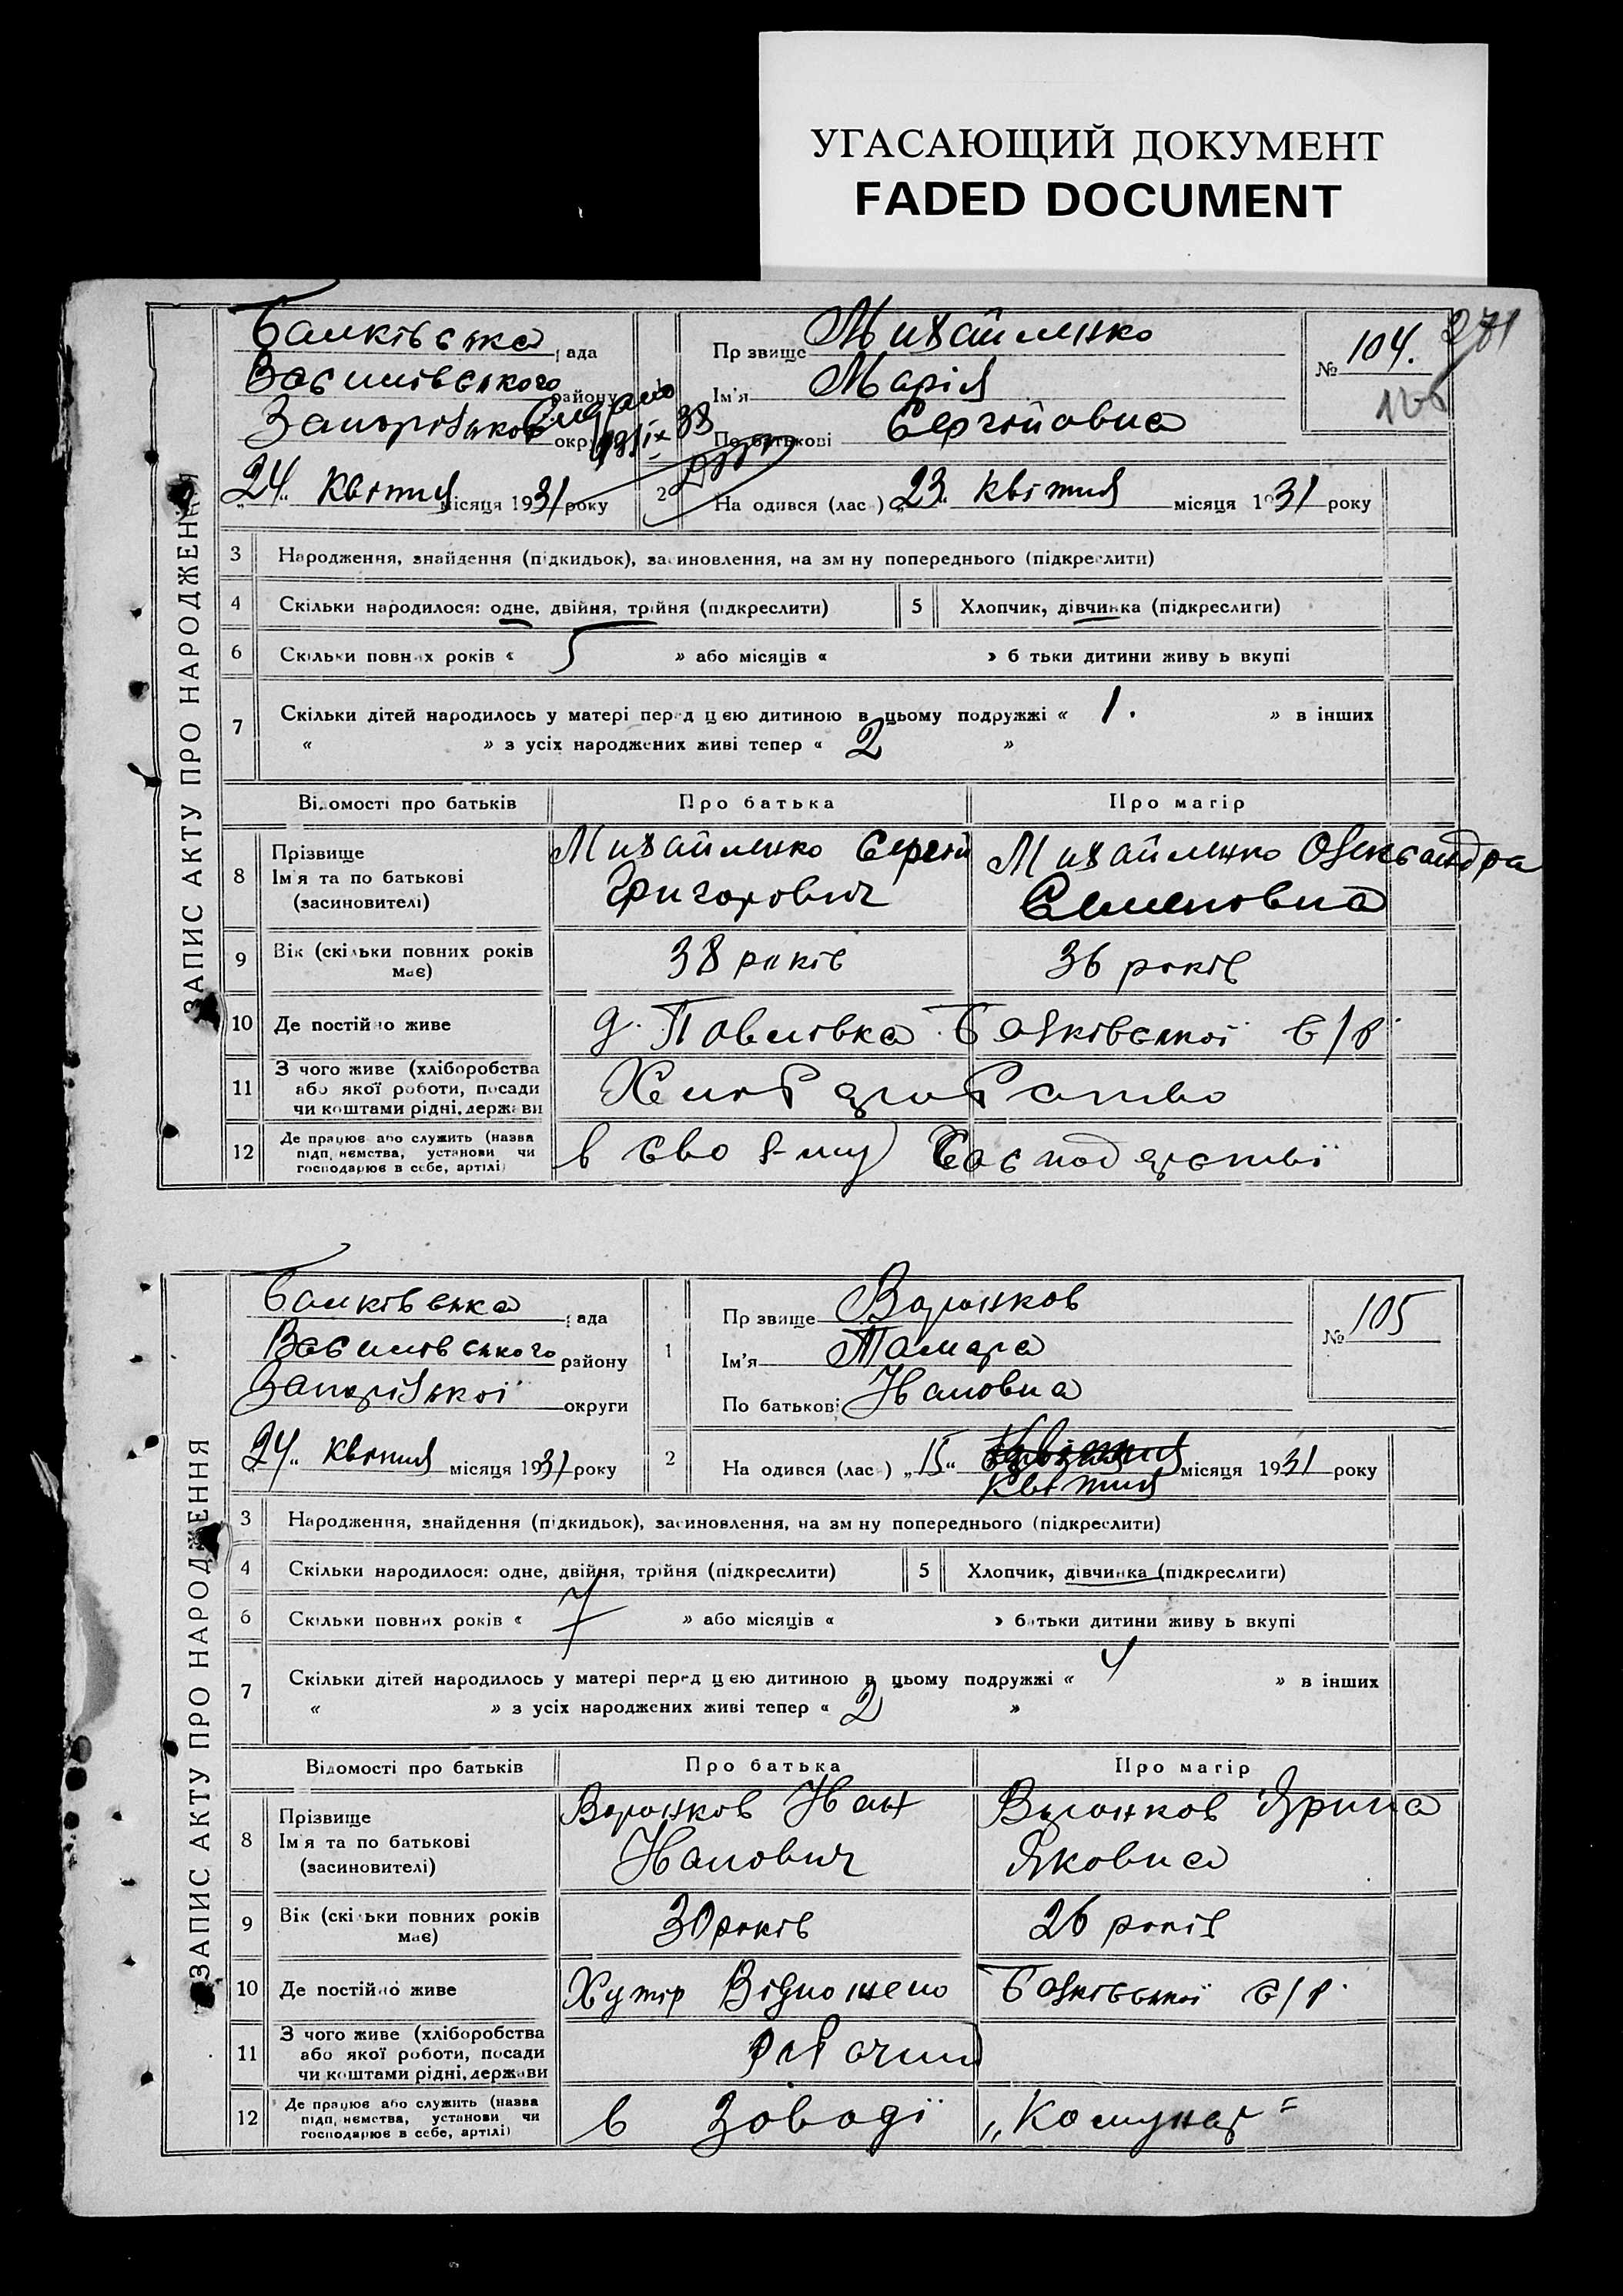 УГАСАЮЩИЙ ДОКУМЕНТ
FADED DOCUMENT
ЗАПИС АКТУ ПРО НАРОДЖЕННЯ
Балківська рада
Василівського району
Запорізької округи
Прізвище Михайленко
Ім'я Марія
По батькові Сергійовна
№ 104.
271
„24„ Квітня місяця 1931 року
2 На одився (лас ) „23„ Квітня місяця 1931 року
3 Народження, знайдення (підкидьок), засиновлення, на зм ну попереднього (підкреслити)
4 Скільки народилося: одне, двійня, трійня (підкреслити)
5 Хлопчик, дівчинка (підкреслити)
6 Скільки повних років « 5 » або місяців « » б тьки дитини живу ь вкупі
7 Скільки дітей народилось у матері перед цією дитиною в цьому подружжі « 1. » в інших
« » з усіх народжених живі тепер « 2 »
Відомості про батьків Про батька Про матір
8 Прізвище
Ім'я та по батькові
(засиновителі)
Михайленко Сергій
Григорович
Михайленко Олександра
Семеновна
9 Вік (скільки повних років
має)
38 років 36 років
10 Де постійно живе д. Павлівка Балківської с/р
11 З чого живе (хліборобства
або якої роботи, посади
чи коштами рідні, держави
Хліборобство
12 Де працює або служить (назва
підп, немства, установи чи
господарює в себе, артілі)
в своєму господарстві
ЗАПИС АКТУ ПРО НАРОДЖЕННЯ
Балківська рада
Василівського району
Запорізької округи
1 Прізвище Воронков
Ім'я Тамара
По батькові Ивановна
№ 105
„24„ Квітня місяця 1931 року
2 На одився (лас ) „15„ Квітня місяця 1931 року
3 Народження, знайдення (підкидьок), засиновлення, на зм ну попереднього (підкреслити)
4 Скільки народилося: одне, двійня, трійня (підкреслити)
5 Хлопчик, дівчинка (підкреслити)
6 Скільки повних років « 7 » або місяців « » батьки дитини живу ь вкупі
7 Скільки дітей народилось у матері перед цією дитиною в цьому подружжі « » в інших
« » з усіх народжених живі тепер « 2 »
Відомості про батьків Про батька Про матір
8 Прізвище
Ім'я та по батькові
(засиновителі)
Воронков Иван
Иванович
Воронков Ярина
Яковна
9 Вік (скільки повних років
має)
30 років 26 років
10 Де постійно живе Хутір Балківської с/р
11 З чого живе (хліборобства
або якої роботи, посади
чи коштами рідні, держави
рабочий
12 Де працює або служить (назва
підп, немства, установи чи
господарює в себе, артілі)
в Заводі „Комунар"